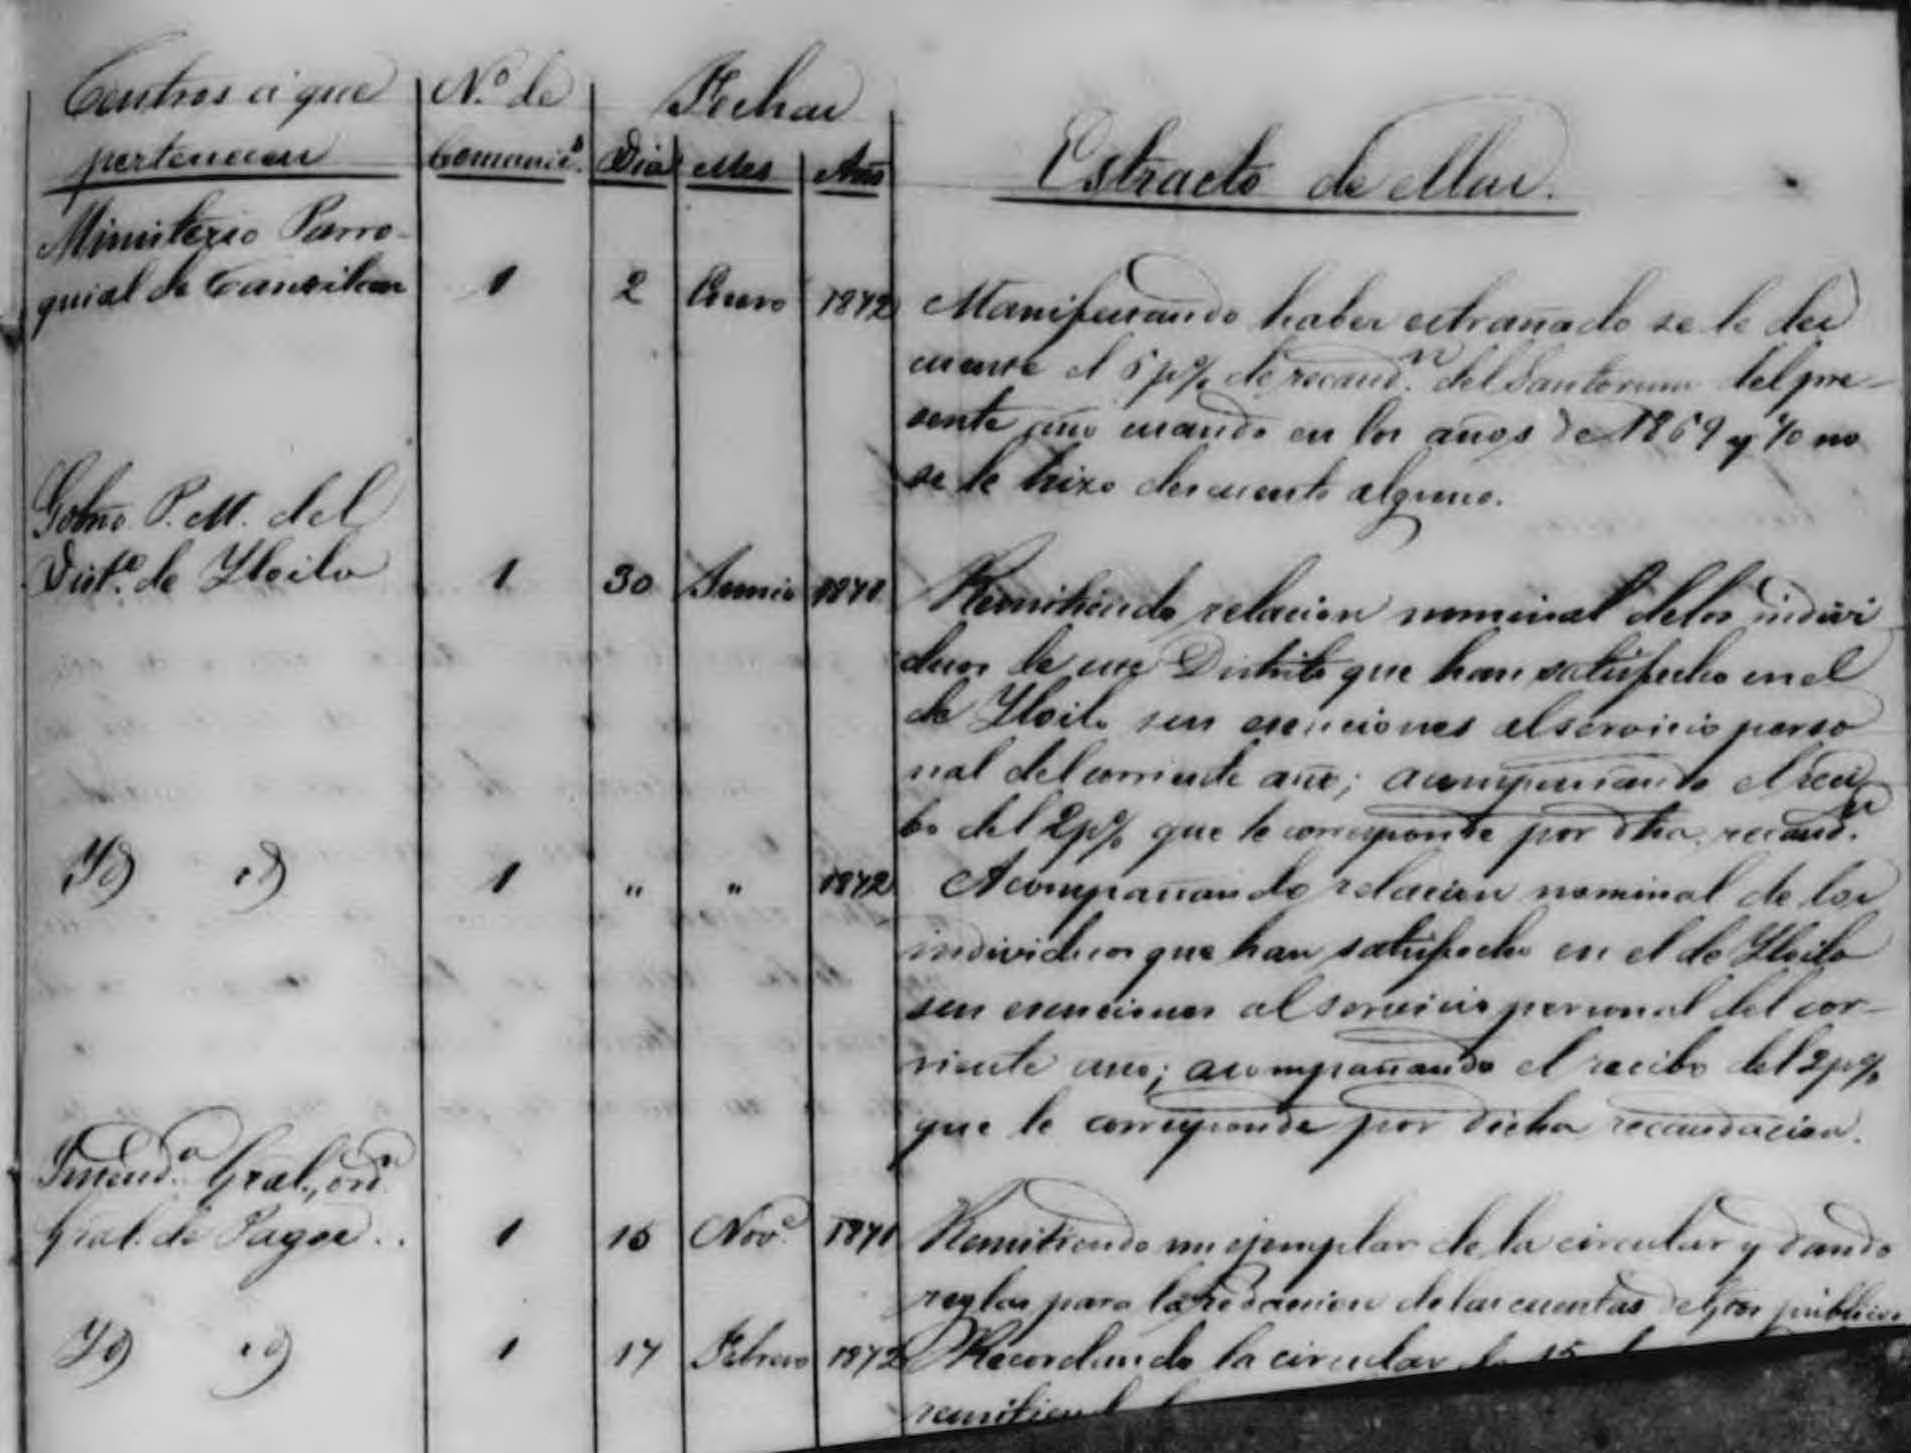 Centros á que
pertenecen
Nº de
Comunics.
Fechas
Dia Mes Año
Estracto de ellas.
Ministerio Parro-
quial de
1 2 Enero 1872
Manifestando haber estrañado se le des
cuente el 5 p% de recaudn. del Santorum del pre-
sente año cuando en los años de 1869 y 70 no
se le hizo descuento alguno.
Gobno. P. M. del
Disto. de Yloilo
1 30 Junio 1871
Remitiendo relacion nominal de los indivi
duos de ese Distrito que han satisfecho en el
de Yloilo sus esenciones al servicio perso
nal del corriente año; acompañando el reci
bo del 2 p% que le corresponde por dha. recaudn.
Yd id
1 " " 1872
Acompañando relacion nominal de los
individuos que han satisfecho en el de Yloilo
sus esenciones al servicio personal del cor-
riente año; acompañando el recibo del 2 p%
que le corresponde por dicha recaudacion.
Intenda. Gral.,
Gral. de Pagos..
1 15 Nove. 1871
Remitiendo un ejemplar de la circular y dando
reglas para la redaccion de las cuentas de públicos
Yd id
1 17 Febrero 1872
Recordando la circular de 15